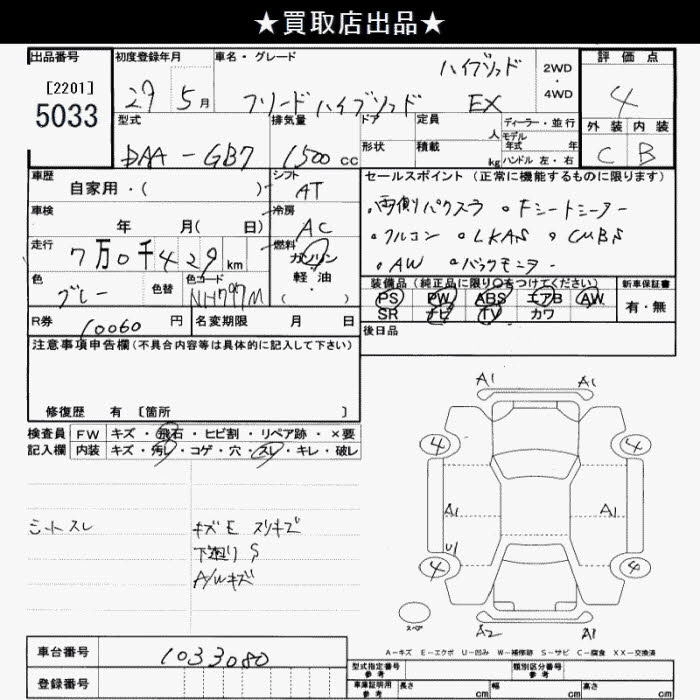 ★買取店出品★
出品番号 初度登録年月 車名・グレード 評価点
[2201] ハイブリッド 2WD
・
5033 27 5月 フリードハイブリッド EX 4WD 4
型式 排気量 ドア 定員 ディーラー・並行 外装 内装
人 モデル年式 年
DAA-GB7 1500cc 形状 積載 kg ハンドル 左・右 C B
車歴 シフト セールスポイント (正常に機能するものに限ります)
自家用・( ) AT ・両側パワスラ ・Fシートヒーター
車検 冷房
年 月( 日) AC ・フルコン ・LKAS ・CMBS
走行 燃料
7万0千429km ガソリン ・AW ・バックモニター
色 色替 色コード 軽・油 装備品 (純正品に限り○をつけてください) 新車保証書
グレー NH797M ( ・ ) PS PW ABS エアB AW 有・無
SR ナビ TV カワ
R券 10060円 名変期限 月 日 後日品
注意事項申告欄(不具合内容等は具体的に記入して下さい)
修復歴 有 [箇所 ]
検査員 FW キズ・飛石・ヒビ割・リペア跡・×要
記入欄 内装 キズ・汚れ・コゲ・穴・スレ・キレ・破レ
A1 A1
4 4
A1 A1
シートスレ キズE スリキズ
下廻りS U1
A/Wキズ 4 4
スペア A2 A1
A-キズ E-エクボ U-凹み W-補修跡 S-サビ C-腐食 XX-交換済
車台番号 1033080
型式指定番号 参考 類別区分番号 参考
登録番号 車庫証明用 参考 長さ cm 幅 cm 高さ cm